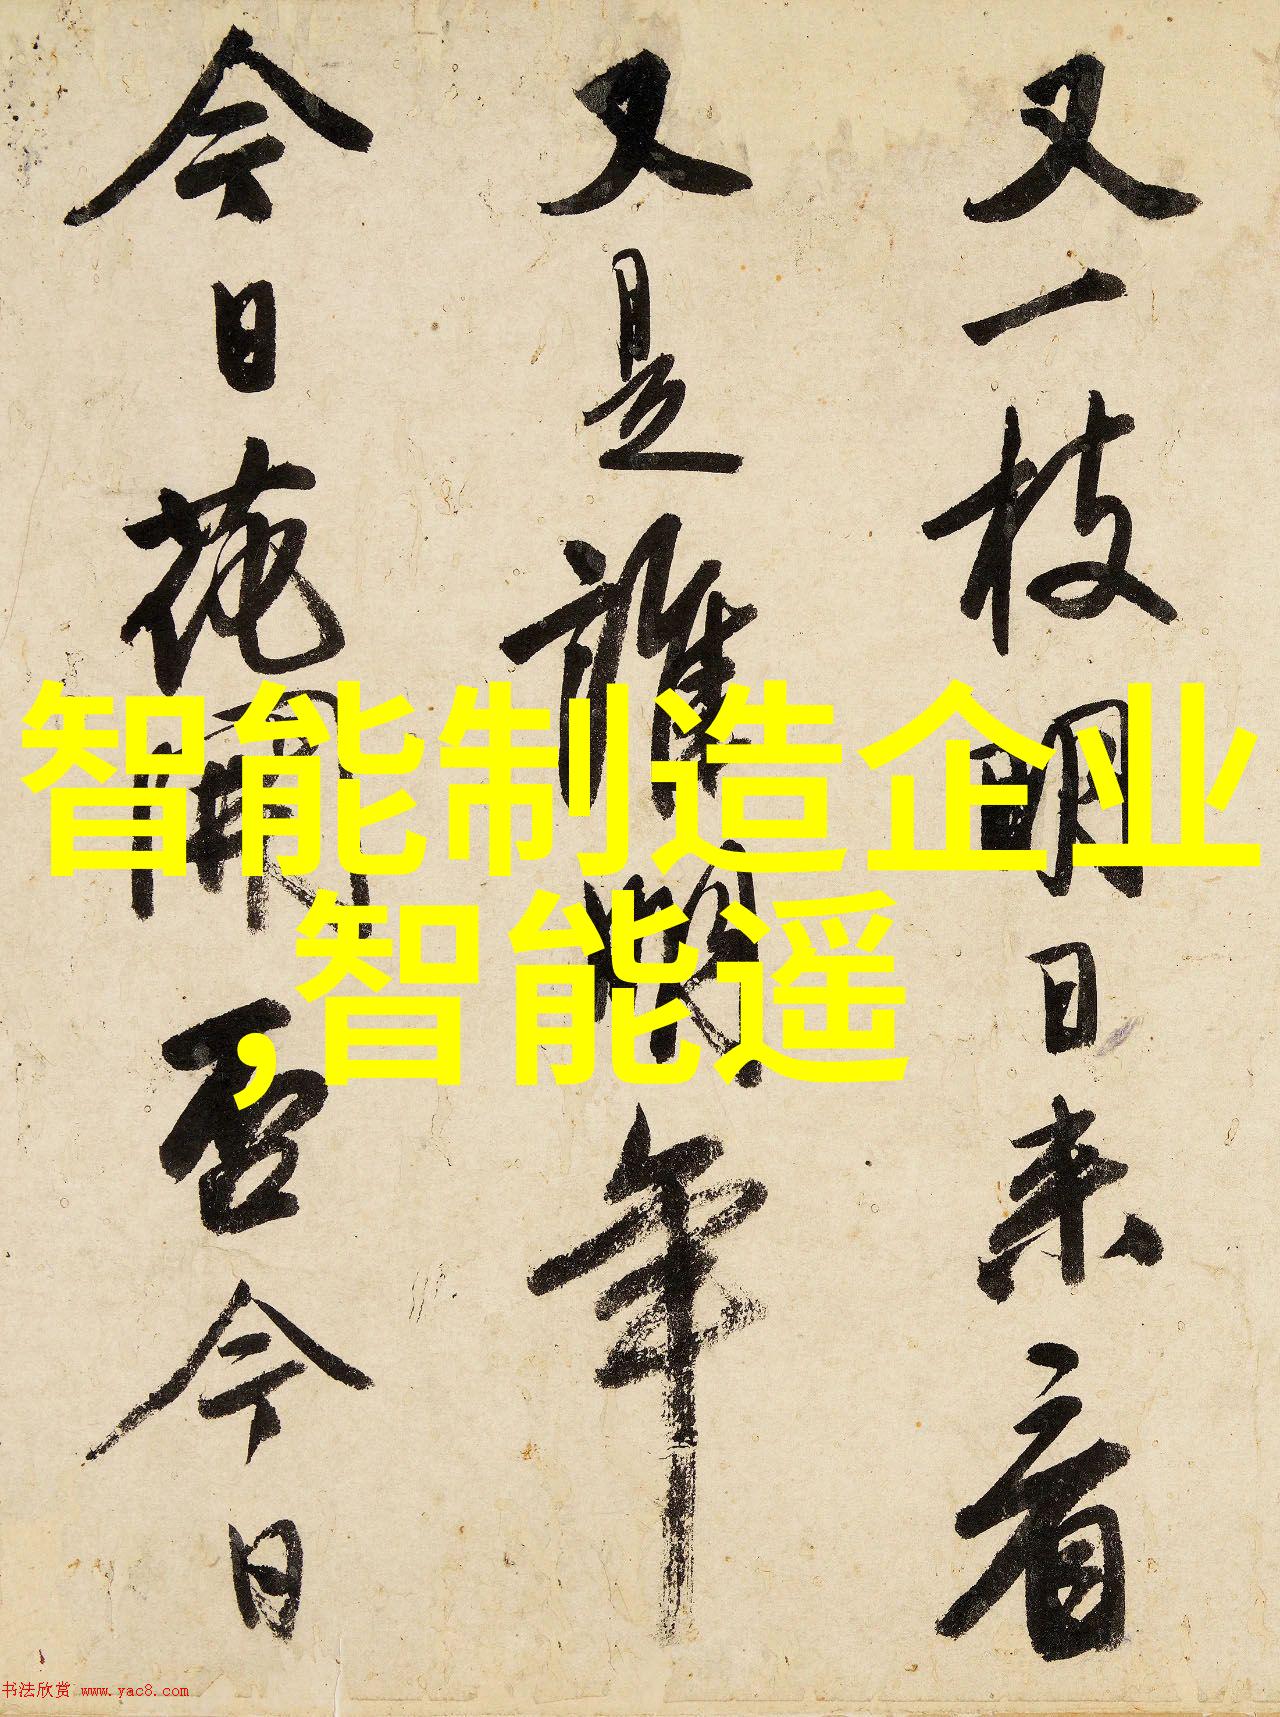 又一枝明日来看
又是誰明年
今日花開否今日
智能制造企业
,智能遥
书法欣赏 www.yac8.com